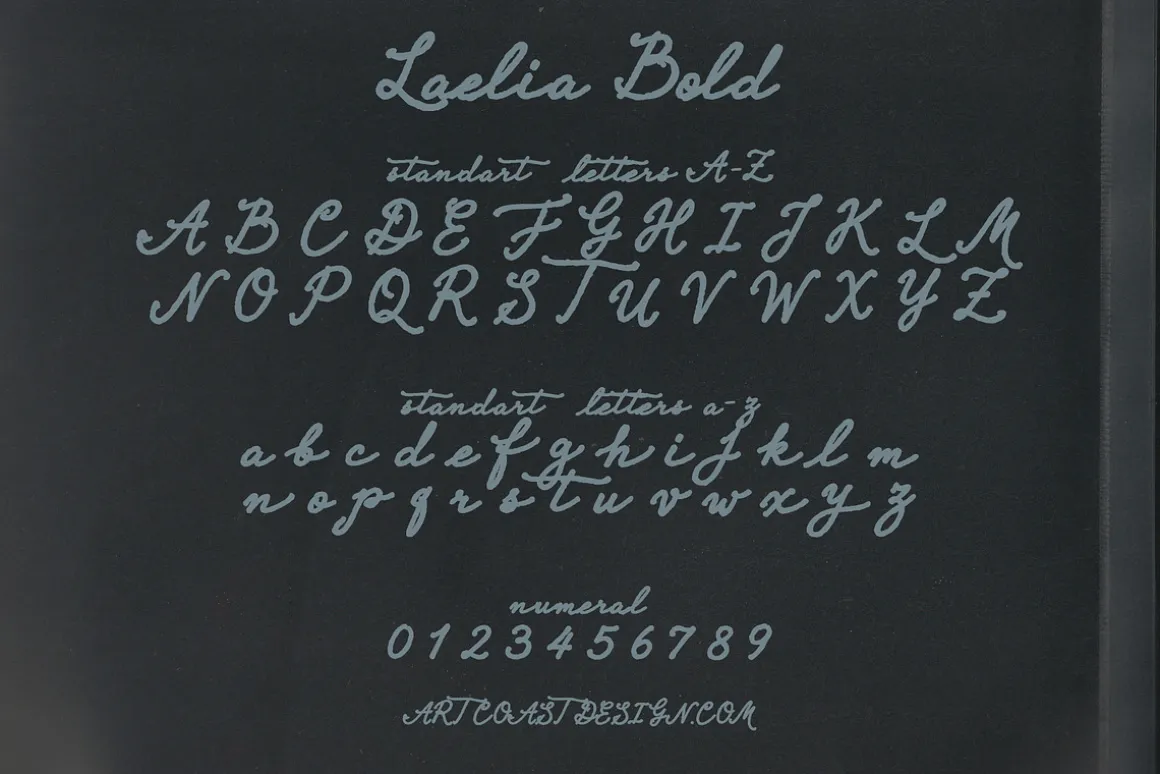 Laelia Bold
standart letters A-Z
A B C D E F G H I J K L M
N O P Q R S T U V W X Y Z
standart letters a-z
a b c d e f g h i j k l m
n o p q r s t u v w x y z
numeral
0 1 2 3 4 5 6 7 8 9
ARTCOASTDESIGN.COM